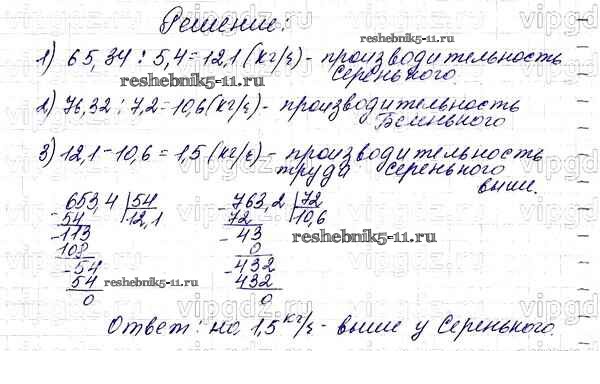 Решение:
1) 65,34 : 5,4 = 12,1 (кг/г) - производительность
Серенького.
2) 76,32 : 7,2 = 10,6 (кг/г) - производительность
Беленького
3) 12,1 - 10,6 = 1,5 (кг/г) - производительность
труда Серенького
выше.
653,4 | 54
- 54 12,1
- 113
108
- 54
54
0
- 763,2 | 72
72 10,6
- 43
0
- 432
432
0
Ответ: на 1,5 кг/г - выше у Серенького.
reshebnik5-11.ru
reshebnik5-11.ru
reshebnik5-11.ru
reshebnik5-11.ru